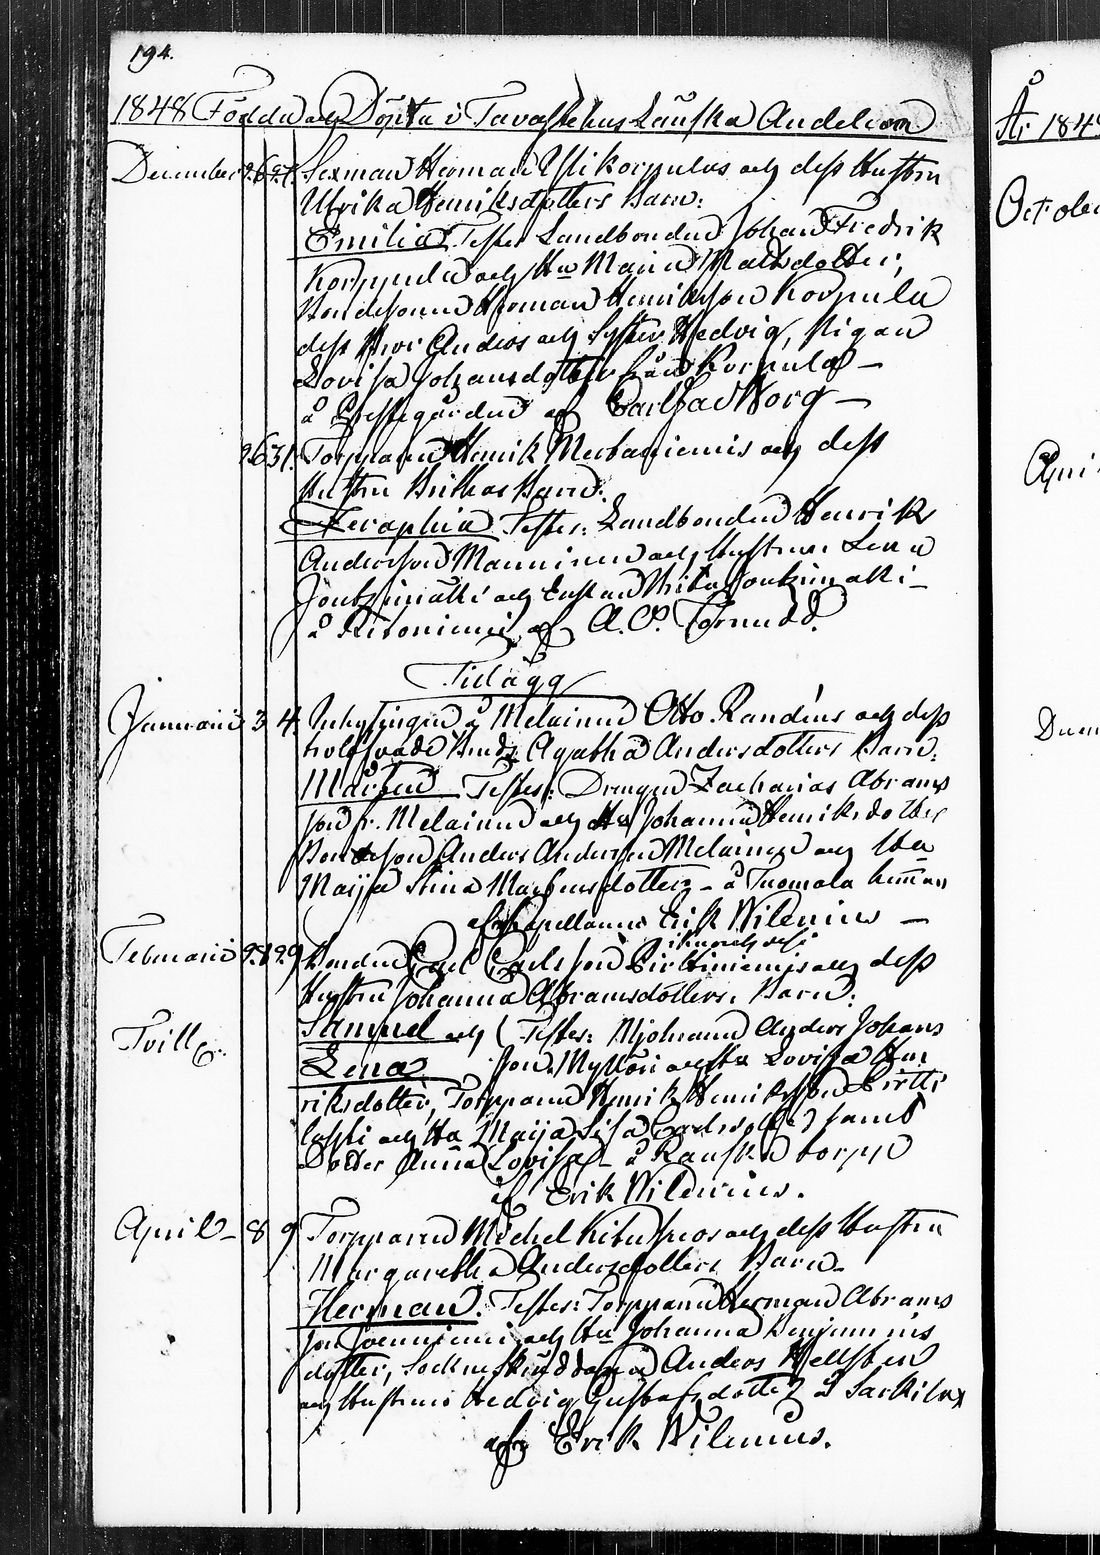 194.
1848 Födda och Döpta i Tavastehus Länska Andelen
December 26. 27. Sexman Herman Yli Korpulas och dess Hustru
Ulrika Henriksdotters Barn:
Emilia. Testes: Landbonden Johan Fredrik
Korppula och Hu Maria Mattsdotter,
Bondesonen Herman Henriksson Korpula
dess Bror Anders och Syster Hedvig, Pigan
Lovisa Johansdotter från Korpula —
å Prestegården af Carl Norg —
26. 31. Torparen Henrik Merbaniemis och dess
Hustru Brithas Barn:
Seraphia. Testes: Landbonden Henrik
Andersson Manninen och Hustrun Lena
Jontzimäki och Enkan Brita Jontzimäki —
å Retoniemi, af A. P. Tornudd.
Tillägg
Januarii 3 4. Inhysingen å Melainen Otto Randéns och dess
Agatha Andersdotters Barn:
Mårten. Testes: Drengen Zacharias Abrams
son fr. Melainen och Hu Johanna Henriksdotter
Bondeson Anders Andersson Melainen och Hu
Maija Stina Mårtensdotter – å Tuomala heman
af Capellanus Erik Wilenius —
Februarii 28 29 Bonden Carl Carlsson Pirttiniemis och dess
Hustru Johanna Abramsdotters Barn:
Samuel och Testes: Mjölnaren Anders Johans
Tvill.
Lena son Mylläri och Hu Lovisa Hen
riksdotter, Torparen Henrik Henriksson Pirtti
lahti och Hu Maija Lisa Carlsdotter samt
Doter Anna Lovisa – å Rauska torp
af Erik Wilenius.
April – 8 9 Torparen Michel Kituskeos och dess Hustru
Margaretha Andersdotters Barn –
Herman. Testes: Torparen Herman Abrams
son Joenniemi och Hu Johanna Benjamins
dotter, Sockneskräddaren Anders Hellsten
och Hustrun Hedvig Gustafsdotter å Sarkila
af Erik Wilenius.
År 1849
October
April
Decem